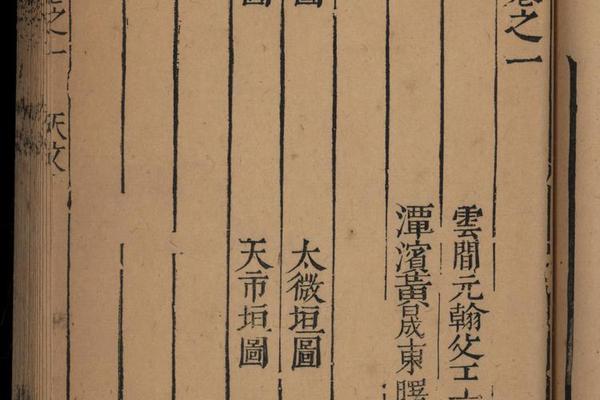 卷之一
雲間元翰父王
潭濱黃晟東曙
圖
太微垣圖
圖
天市垣圖
之一 天文